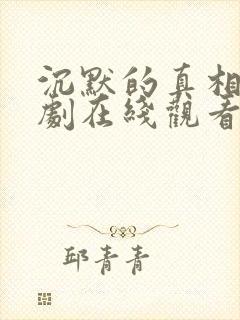 沉默的真相
劇在綫觀看
邱青青